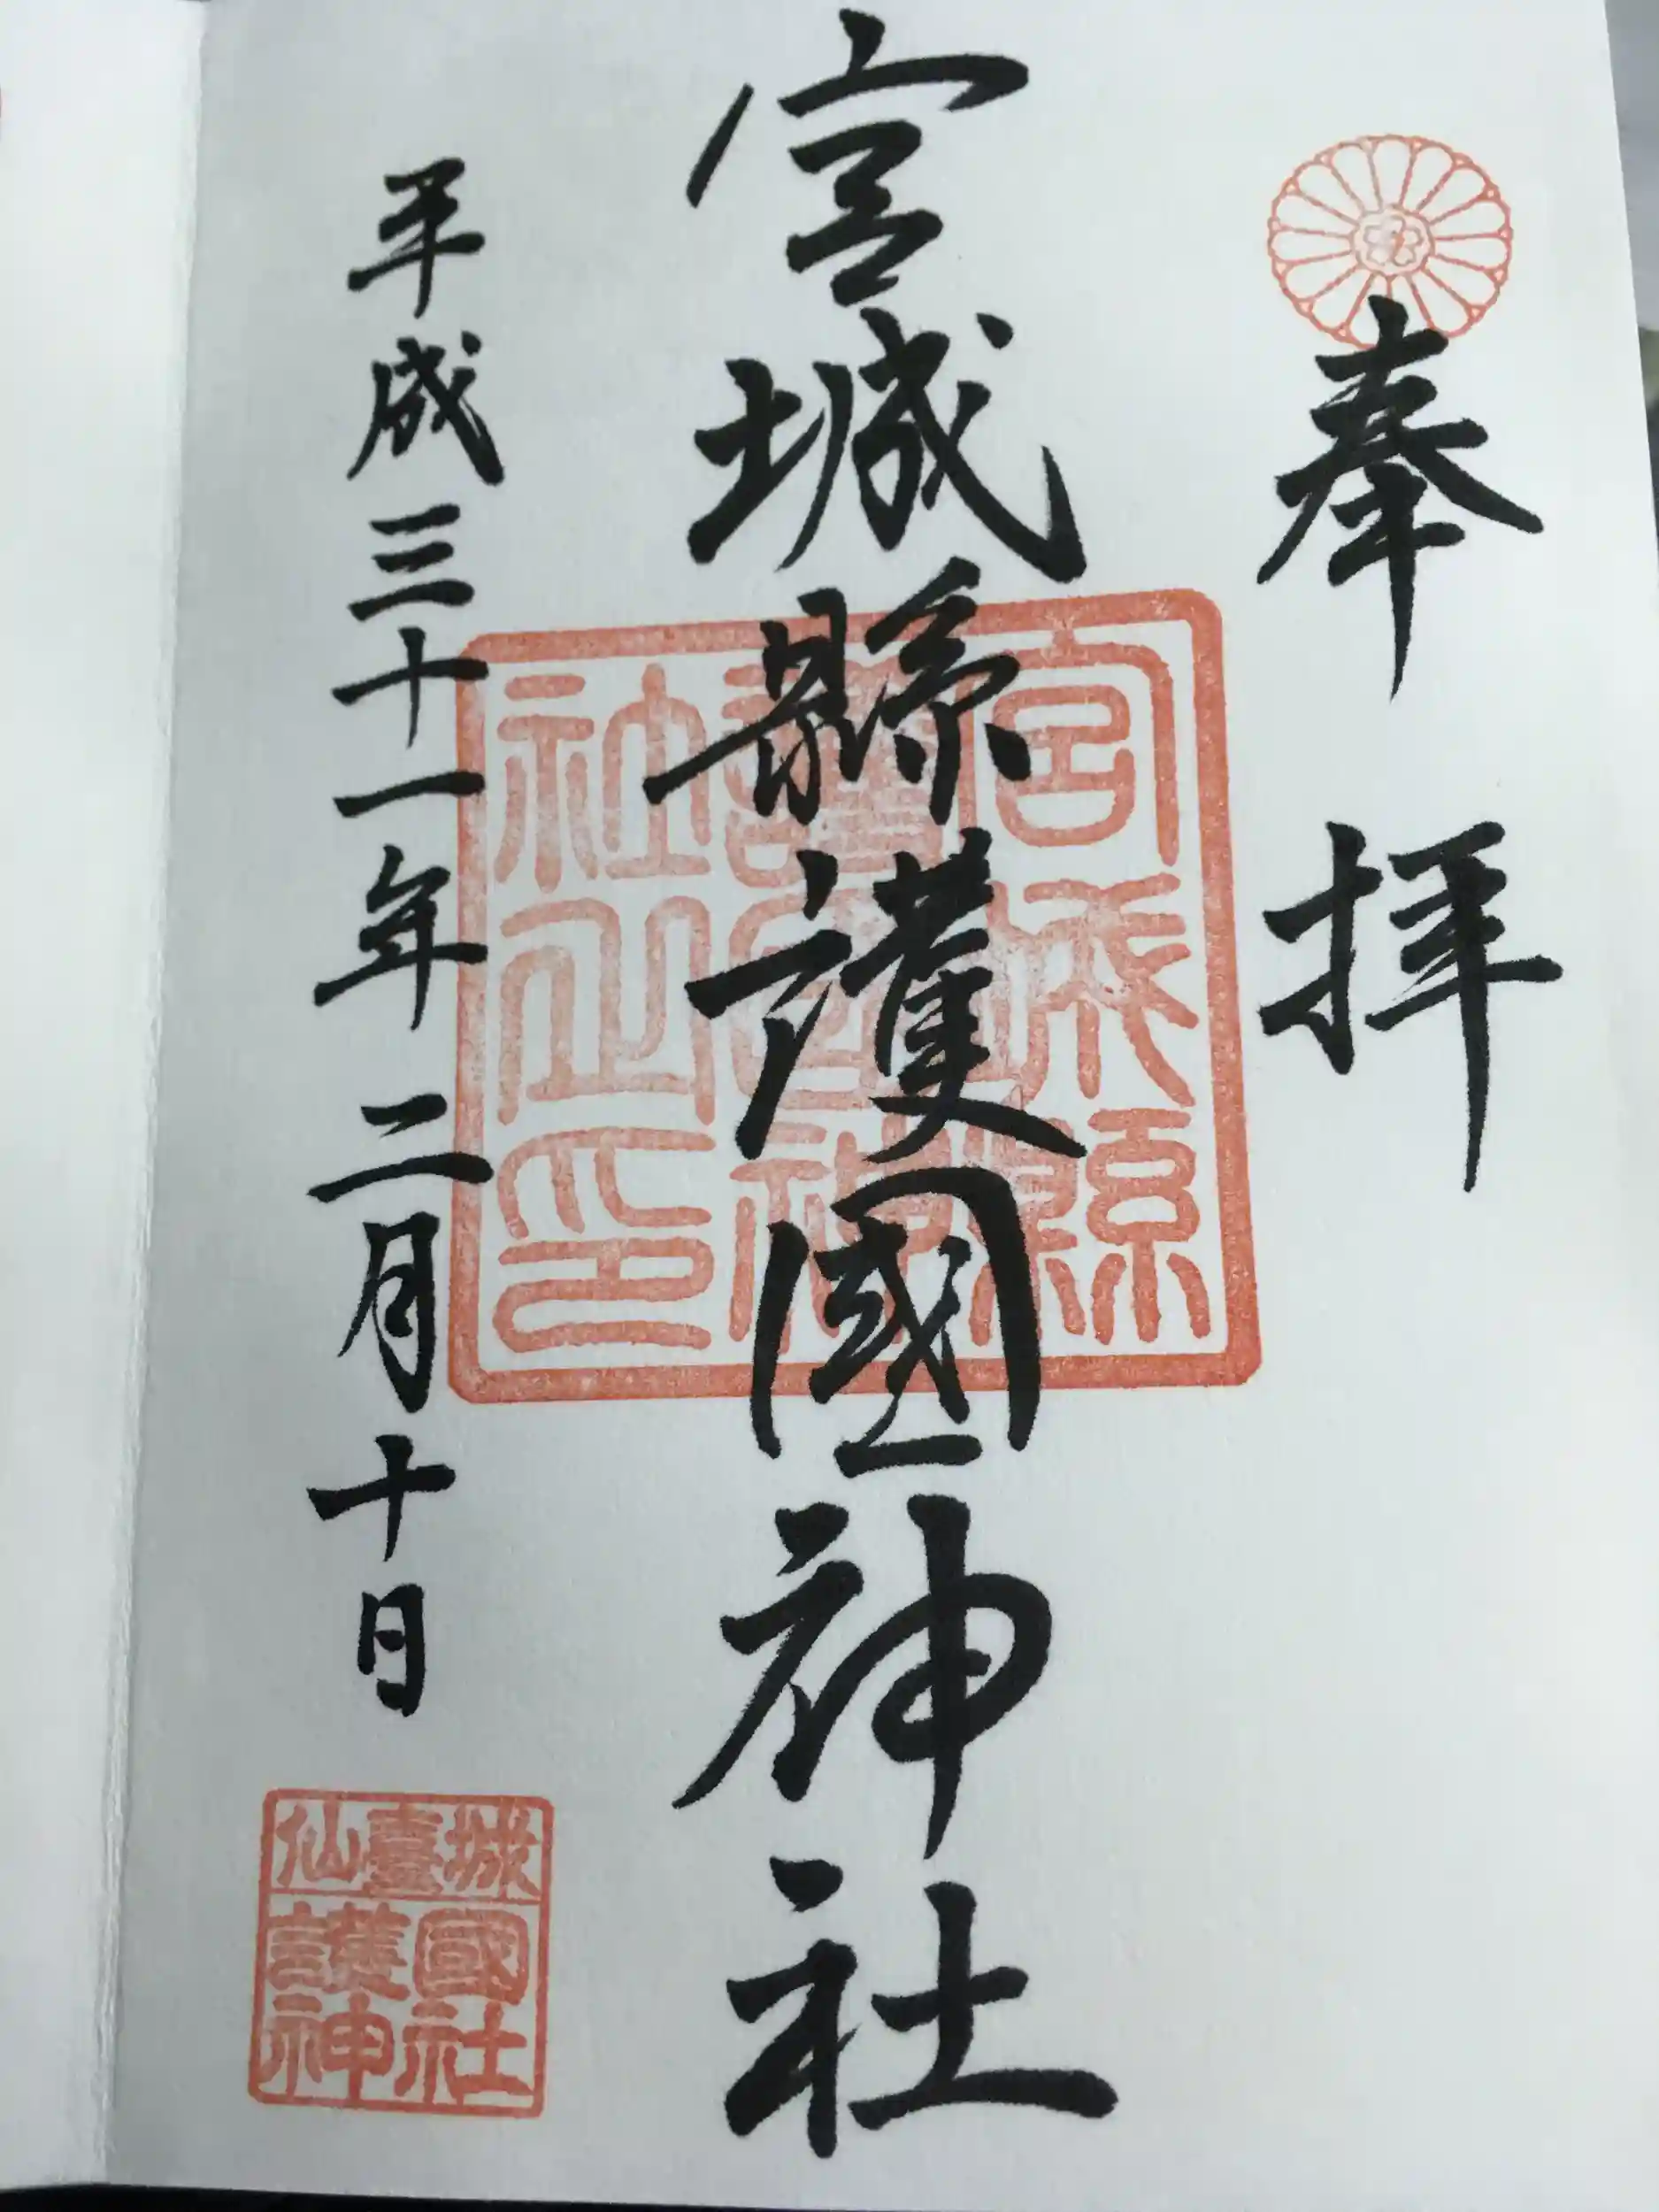 奉拝
宮城縣護國神社
平成三十一年二月十日
宮城縣
護國神
社之印
仙臺城
護國
神社